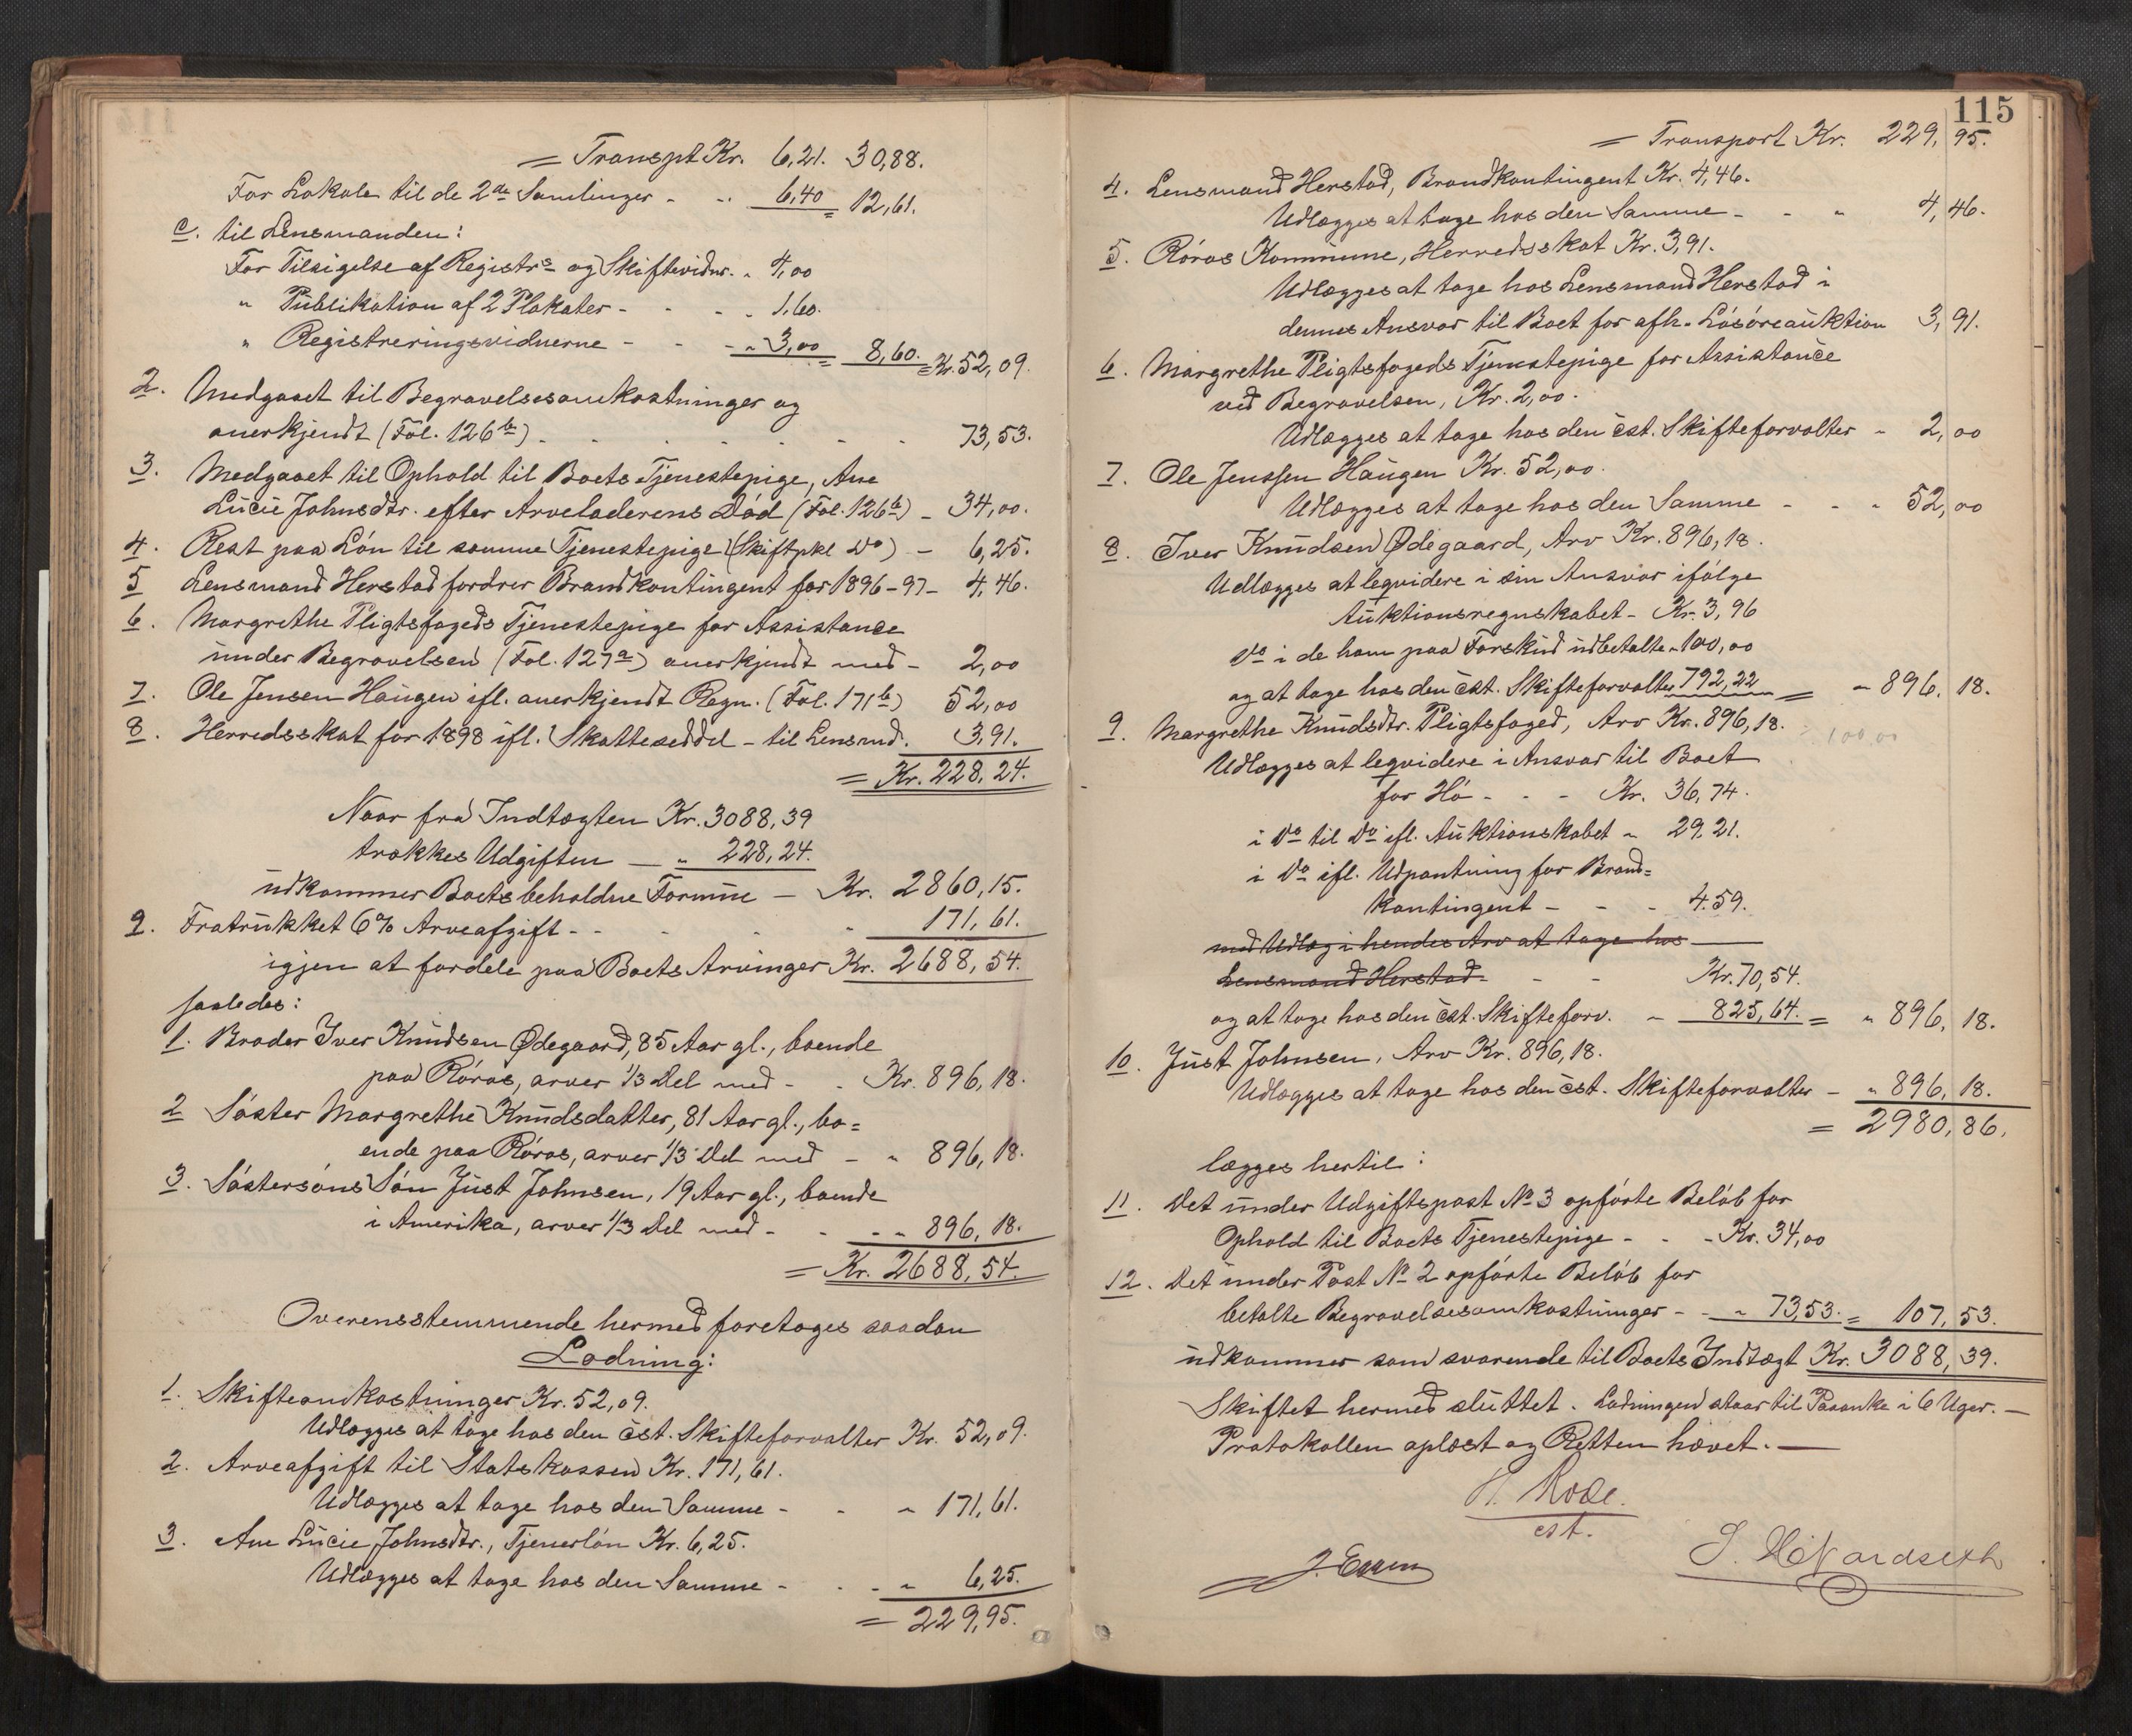 = Transpt Kr. 6,21. 30,88.
For Lokale til de 2de Samlinger - - 6,40 = 12,61.
c. til Lensmanden:
For Tilsigelse af Registrs- og Skiftevidner. " 4,00
" Publikation af 2 Plakater - - - - 1,60.
" Registreringsvidnerne - - - " 3,00 = 8,60. = Kr. 52,09.
2. Medgaaet til Begravelsesomkostninger og
anerkjendt (Fol. 126b) - - - - - - 73,53.
3. Medgaaet til Ophold til Boets Tjenestepige, Ane
Lucie Johnsdtr. efter Arveladerens Død (Fol. 126b) - 34,00.
4. Rest paa Løn til samme Tjenestepige (Skiftpkl Do) - 6,25.
5 Lensmand Herstad fordrer Brandkontingent for 1896-97 - 4,46.
6. Margrethe Pligtsfogeds Tjenestepige for Assistance
under Begravelsen (Fol. 127a) anerkjendt med - 2,00
7. Ole Jensen Haugen ifl. anerkjendt Regn. (Fol. 171b) 52,00
8. Herredsskat for 1898 ifl. Skatteseddel - til Lensmd. 3,91.
= Kr. 228,24.
Naar fra Indtægten Kr. 3088,39
trækkes Udgiften - " 228,24.
udkommer Boets beholdne Formue - Kr. 2860,15.
9. Fratrukket 6% Arveafgift - - - - " 171,61.
igjen at fordele paa Boets Arvinger Kr. 2688,54.
saaledes:
1. Broder Iver Knudsen Ødegaard, 85 Aar gl., boende
paa Røros, arver 1/3 Del med - - Kr. 896,18.
2 Søster Margrethe Knudsdatter, 81 Aar gl., bo=
ende paa Røros, arver 1/3 Del med - " 896,18.
3. Søstersøns Søn Just Johnsen, 19 Aar gl., boende
i Amerika, arver 1/3 Del med - - - " 896,18.
= Kr. 2688,54.
Overensstemmende hermed foretages saadan
Lodning:
1. Skifteomkostninger Kr. 52,09.
Udlægges at tage hos den cst. Skifteforvalter Kr. 52,09.
2. Arveafgift til Statskassen Kr. 171,61.
Udlægges at tage hos den Samme - - " 171,61.
3. Ane Lucie Johnsdtr., Tjenerløn Kr. 6,25.
Udlægges at tage hos den Samme - - - " 6,25.
= 229,95.
115
= Transport Kr. 229,95.
4. Lensmand Herstad, Brandkontingent Kr. 4,46.
Udlægges at tage hos den Samme - - " 4,46.
5. Røros Kommune, Herredsskat Kr. 3,91.
Udlægges at tage hos Lensmand Herstad i
dennes Ansvar til Boet for afh. Løsøreauktion 3,91.
6. Margrethe Pligtsfogeds Tjenestepige for Assistance
ved Begravelsen, Kr. 2,00.
Udlægges at tage hos den cst. Skifteforvalter - 2,00
7. Ole Jenssen Haugen Kr. 52,00.
Udlægges at tage hos den Samme - - " 52,00
8. Iver Knudsen Ødegaard, Arv Kr. 896,18.
Udlægges at leqvidere i sin Ansvar ifølge
Auktionsregnskabet - Kr. 3,96
Do i de ham paa Forskud udbetalte " 100,00
og at tage hos den cst. Skifteforvalter 792,22 = " 896,18.
9. Margrethe Knudsdtr. Pligtsfoged, Arv Kr. 896,18.
100,00
Udlægges at leqvidere i Ansvar til Boet
for Hø - - - Kr. 36,74.
i Do til Do ifl. Auktionskabet " 29,21.
i Do ifl. Udpantning for Brand=
kontingent - - - 4.59.
med Udlæg i hendes Arv at tage hos
Lensmand Herstad - - - Kr. 70,54.
og at tage hos den cst. Skifteforv. - 825,64. = " 896,18.
10. Just Johnsen, Arv Kr. 896,18.
Udlægges at tage hos den cst. Skifteforvalter - " 896,18.
= 2980,86.
lægges hertil:
11. Det under Udgiftspost No 3 opførte Beløb for
Ophold til Boets Tjenestepige - - - Kr. 34,00
12. Det under Post No 2 opførte Beløb for
betalte Begravelsesomkostninger - - " 73,53. = 107,53.
udkommer som svarende til Boets Indtægt Kr. 3088,39.
Skiftet hermed sluttet. Lodningen staar til Paaanke i 6 Uger. -
Protokollen oplæst og Retten hævet. -
H. Rode.
cst.